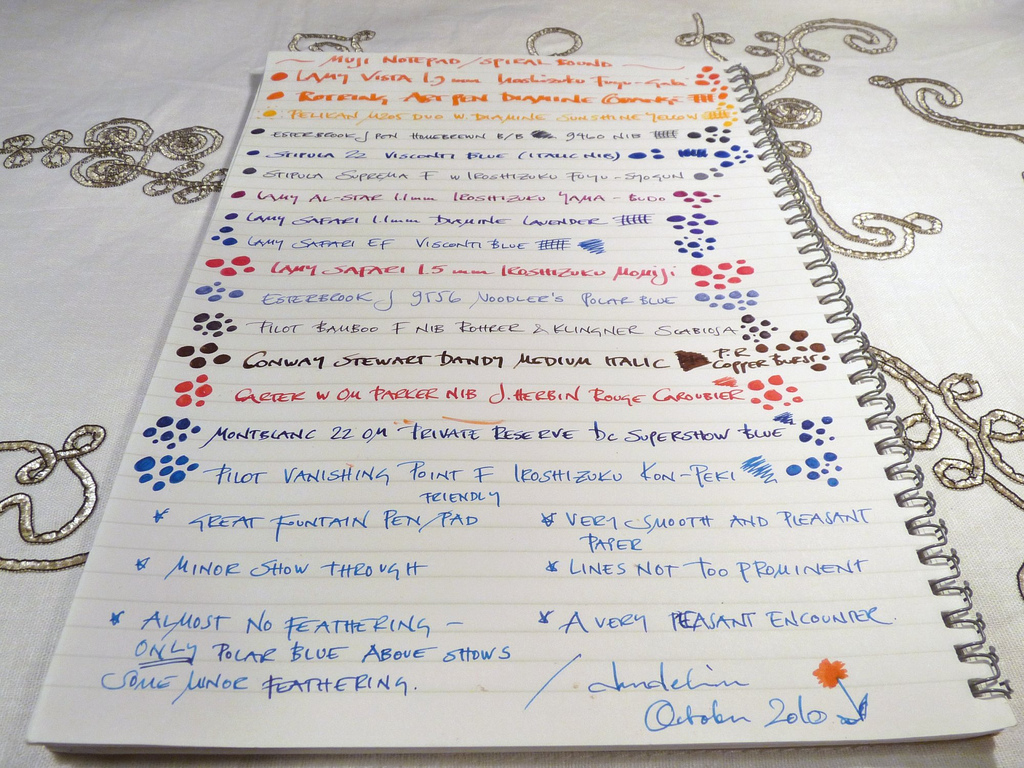 ~ MUJI NOTEPAD/SPIRAL BOUND ~
LAMY VISTA 1.9 mm IROSHIZUKU FUYU-GAKI
ROTRING ART PEN DIAMINE ORANGE
PELIKAN M205 DUO W. DIAMINE SUNSHINE YELLOW
ESTERBROOK J PEN HOMEBREWN B/B 9460 NIB
STIPULA 22 VISCONTI BLUE (ITALIC NIB)
STIPULA SUPREMA F W IROSHIZUKU FUYU-SYOGUN
LAMY AL-STAR 1.1mm IROSHIZUKU YAMA-BUDO
LAMY SAFARI 1.1mm DIAMINE LAVENDER
LAMY SAFARI EF VISCONTI BLUE
LAMY SAFARI 1.5 mm IROSHIZUKU MOMIJI
ESTERBROOK J 9556 NOODLER'S POLAR BLUE
PILOT BAMBOO F NIB ROHRER & KLINGNER SCABIOSA
CONWAY STEWART DANDY MEDIUM ITALIC P.R COPPER BURST
CARTER W OM PARKER NIB J. HERBIN ROUGE CAROUBIER
MONTBLANC 22 OM PRIVATE RESERVE DC SUPERSHOW BLUE
PILOT VANISHING POINT F IROSHIZUKU KON-PEKI
FRIENDLY
* GREAT FOUNTAIN PEN/PAD
* MINOR SHOW THROUGH
* ALMOST NO FEATHERING –
ONLY POLAR BLUE ABOVE SHOWS
SOME MINOR FEATHERING.
* VERY SMOOTH AND PLEASANT
PAPER
* LINES NOT TOO PROMINENT
* A VERY PLEASANT ENCOUNTER.
October 2010